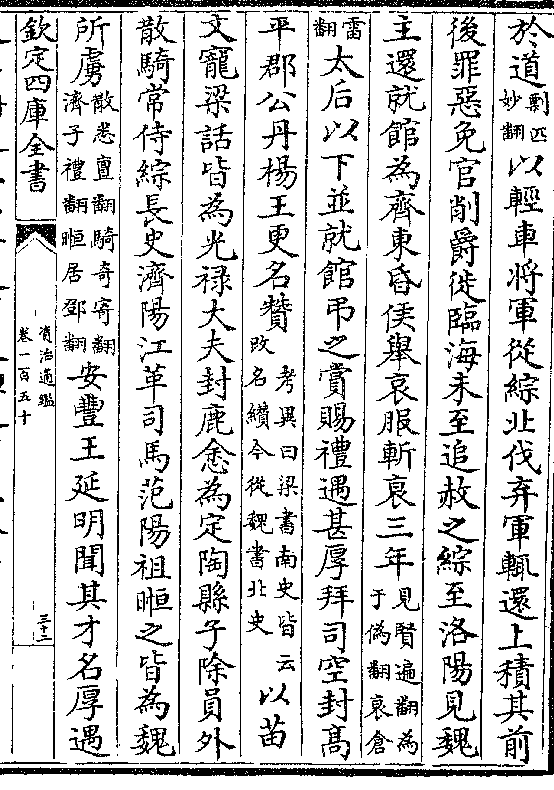 於道剽匹妙翻以輕車將軍從綜北伐弃軍輒還上積其前
後罪惡免官削爵徙臨海未至追赦之綜至洛陽見魏
主還就館為齊東昏侯舉哀服斬衰三年見賢遍翻為于偽翻衰倉
雷翻太后以下並就館弔之賞賜禮遇甚厚拜司空封髙
平郡公丹楊王更名贊考異曰梁書南史皆云改名纉今從魏書北史以苗
文寵梁話皆為光禄大夫封鹿悆為定陶縣子除員外
散騎常侍綜長史濟陽江革司馬范陽祖暅之皆為魏
所虜散悉亶翻騎奇寄翻濟子禮翻暅居鄧翻安豐王延明聞其才名厚遇
欽定四庫全書
資治通鑑
卷一百五十
三十二